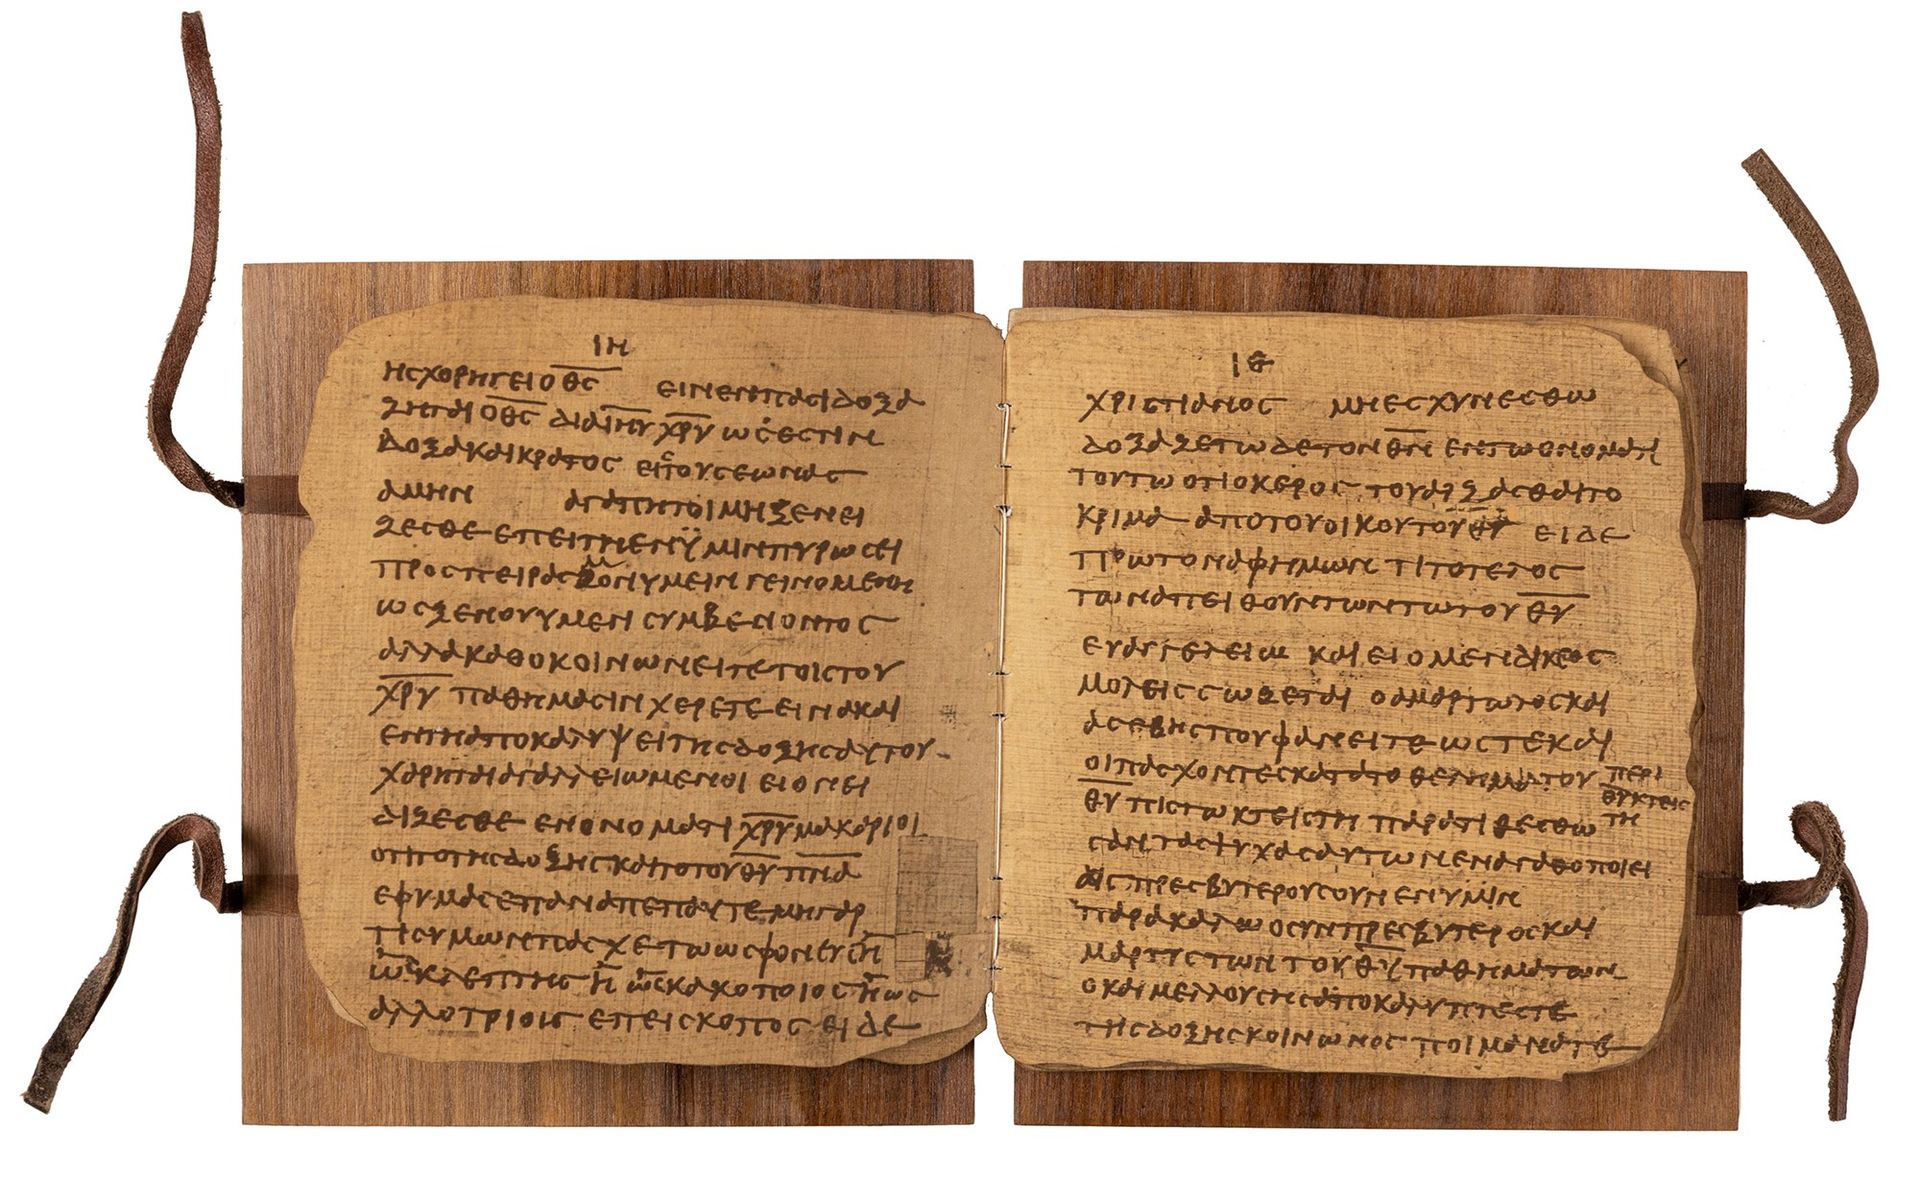 ΙΗ
ΗСΧΟΡΗΓΕΙΟΘ̅С̅ ΕΙΝΕΝΠΑСΙΔΟΞΑ
ΖΗΤΑΙΟΘ̅С̅ ΔΙΑΙ̅Η̅Υ̅Χ̅Ρ̅Υ̅ΩΕСΤΙΝ
ΔΟΞΑΚΑΙΚΡΑΤΟС ΕΙСΤΟΥСΕΩΝΑС
ΑΜΗΝ ΑΓΑΠΗΤΟΙΜΗΞΕΝΕΙ
ΖΕСΘΕ ΕΠΕΙΤΗΕΝΫΜΙΝΠΥΡΩСΕΙ
ΠΡΟСΠΕΙΡΑСΜΟΝΥΜΕΙΝ ΓΕΙΝΟΜΕΝΗ
ΩСΞΕΝΟΥΥΜΕΝ СΥΜΒΕΝΟΝΤΟС
ΑΛΛΑΚΑΘΟΚΟΙΝΩΝΕΙΤΕΤΟΙСΤΟΥ
Χ̅Ρ̅Υ̅ ΠΑΘΗΜΑСΙΝΧΕΡΕΤΕΕΙΝΑΚΑΙ
ΕΝΤΗΑΠΟΚΑΛΥΨΕΙΤΗСΔΟΞΗСΑΥΤΟΥ
ΧΑΡΗΤΑΙΑΓΑΛΛΕΙΩΜΕΝΟΙ ΕΙΟΝΕΙ
ΔΙΖΕСΘΕ ΕΝΟΝΟΜΑΤΙΧ̅Ρ̅Υ̅ΜΑΚΑΡΙΟΙ
ΟΤΙΤΟΤΗСΔΟΞΗСΚΑΙΤΟΤΟΥΘ̅Υ̅Π̅Ν̅Α̅
ΕΦΥΜΑСΕΠΑΝΑΠΕΠΑΥΤΕΜΗΓΑΡ
ΤΙСΥΜΩΝΠΑСΧΕΤΩΩСΦΟΝΕΥСΗ
ΩСΚΛΕΠΤΗС Η ΩСΚΑΚΟΠΟΙΟСΗΩС
ΑΛΛΟΤΡΙΟΙС ΕΠΕΙСΚΟΠΟС ΕΙΔΕ
ΙΘ
ΧΡΙСΤΙΑΝΟС ΜΗΕСΧΥΝΕСΘΩ
ΔΟΞΑΖΕΤΩΔΕΤΟΝΘ̅Ν̅ ΕΝΤΩΟΝΟΜΑΤΙ
ΤΟΥΤΩ ΟΤΙΟΚΕΡΟС ΤΟΥΑΡΞΑСΘΑΙΤΟ
ΚΡΙΜΑ ΑΠΟΤΟΥΟΙΚΟΥΤΟΥΘ̅Υ̅ ΕΙΔΕ
ΠΡΩΤΟΝΑΦΗΜΩΝ ΤΙΤΟΤΕΛΟС
ΤΩΝΑΠΕΙΘΟΥΝΤΩΝΤΩΤΟΥΘ̅Υ̅
ΕΥΑΓΓΕΛΕΙΩ ΚΑΙΕΙΟΜΕΝΔΙΚΕΟС
ΜΟΛΕΙССΩΖΕΤΑΙ ΟΑΜΑΡΤΩΛΟСΚΑΙ
ΑСΕΒΗСΠΟΥΦΑΝΕΙΤΕΩСΤΕΚΑΙ
ΟΙΠΑСΧΟΝΤΕСΚΑΤΑΤΟΘΕΛΗΜΑΤΟΥ ΠΕΡΙ
ΘΥΚΤΕΙС
ΤΗ
Θ̅Υ̅ΠΙСΤΩΚΤΕΙСΤΗ ΠΑΡΑΤΙΘΕСΘΩ
СΑΝΤΑСΨΥΧΑСΑΥΤΩΝΕΝΑΓΑΘΟΠΟΙΕΙ
ΑΙС ΠΡΕСΒΥΤΕΡΟΥСΟΥΝΕΝΥΜΙΝ
ΠΑΡΑΚΑΛΩΟСΥΝΠΡΕСΒΥΤΕΡΟСΚΑΙ
ΜΑΡΤΥСΤΩΝΤΟΥΘ̅Υ̅ΠΑΘΗΜΑΤΩΝ
ΟΚΑΙΜΕΛΛΟΥСΗСΑΠΟΚΑΛΥΠΤΕСΤΕ
ΤΗСΔΟΞΗСΚΟΙΝΩΝΟС ΠΟΙΜΑΝΑΤΕ